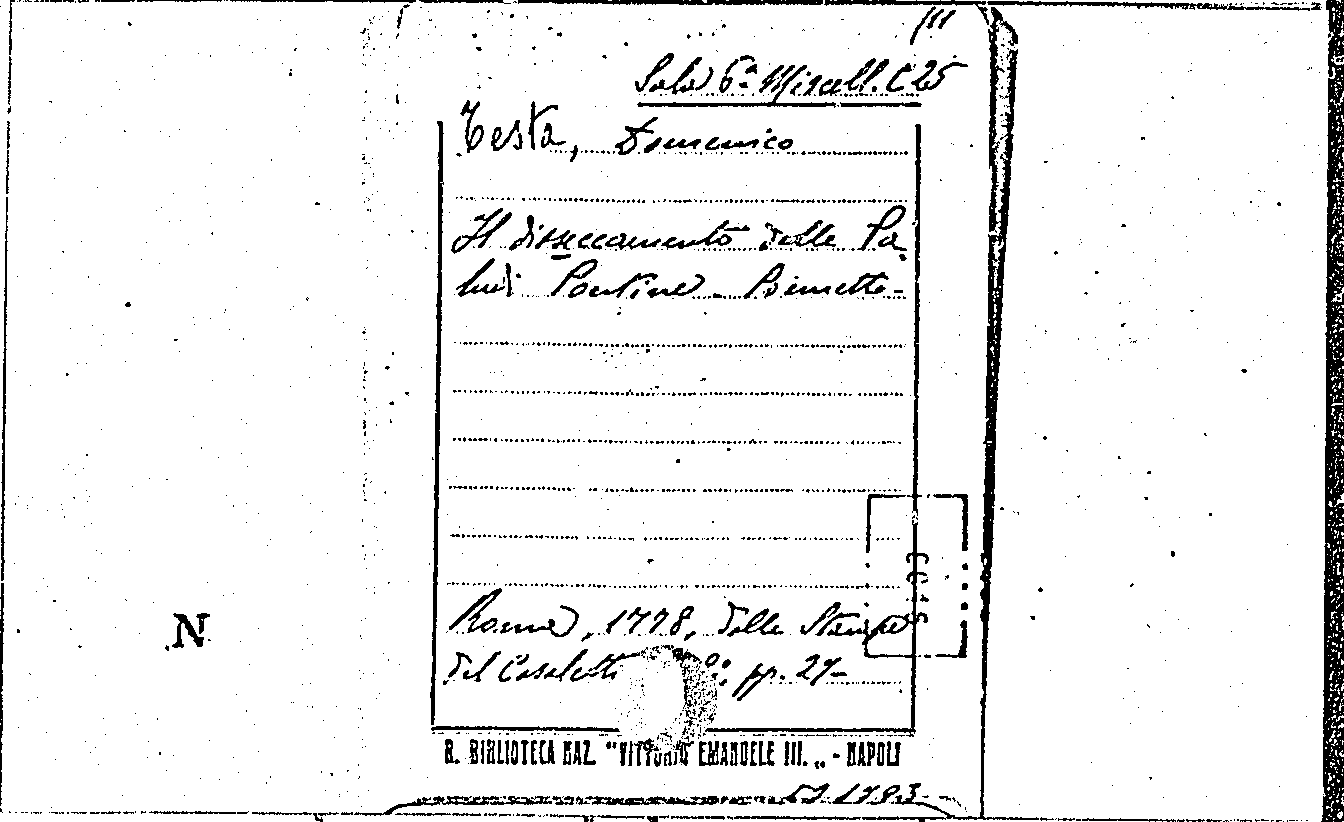 Sala 6ª Miscell. C 25
Testa, Domenico
Il disseccamento delle Pa-
ludi Pontine. Poemetto-
Roma, 1778, dalle Stampe
del Casaletti pp. 27-
N
R. BIBLIOTECA NAZ. "VITTORIO EMANUELE III. „ - NAPOLI